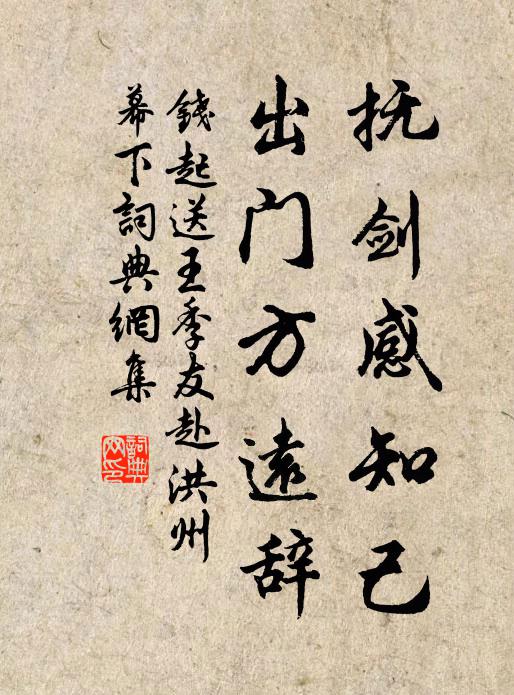 抚剑感知己
出门方遠辞
錢起送王季友赴洪州
幕下詞典網集
詞典
网印